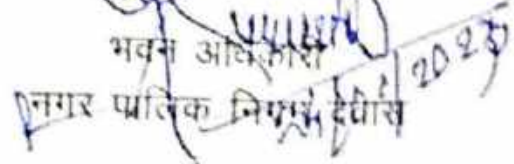 भवन अधिकारी
नगर पालिक निगम देवास
2023